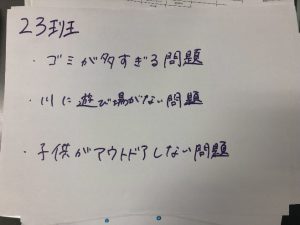 23班
・ゴミが多すぎる問題
・川に遊び場がない問題
・子供がアウトドアしない問題